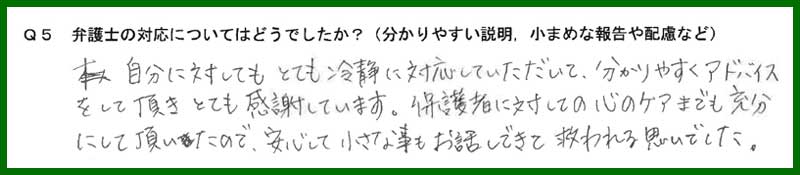 Q5 弁護士の対応についてはどうでしたか?(分かりやすい説明,小まめな報告や配慮など)
自分に対しても とても冷静に対応していただいて、分かりやすくアドバイス
をして頂き とても感謝しています。保護者に対しての心のケアまでも充分
にして頂いたので、安心して小さな事もお話しできて 救われる思いでした。